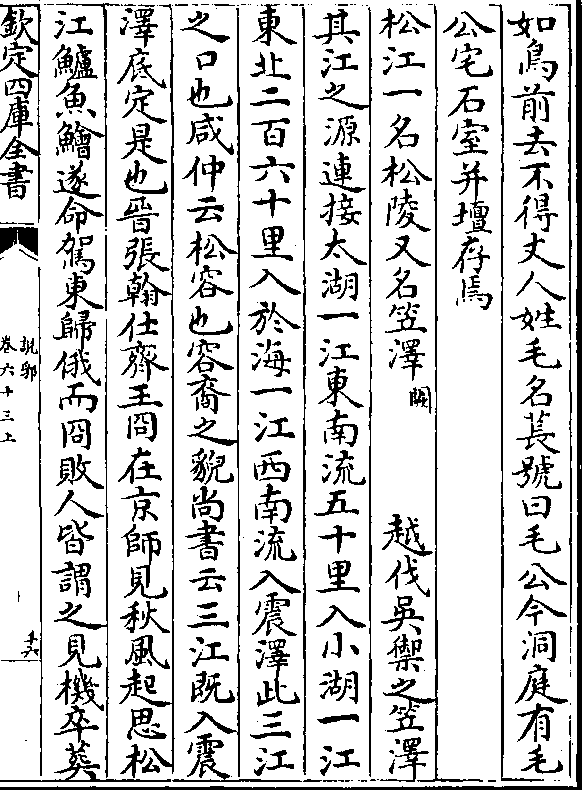 如鳥前去不得丈人姓毛名萇號曰毛公今洞庭有毛
公宅石室并壇存焉
松江一名松陵又名笠澤闕 越伐吳禦之笠澤
其江之源連接太湖一江東南流五十里入小湖一江
東北二百六十里入於海一江西南流入震澤此三江
之口也咸仲云松容也容裔之貌尚書云三江既入震
澤底定是也晉張翰仕齊王冏在京師見秋風起思松
江鱸魚鱠遂命駕東歸俄而冏敗人皆謂之見機卒葬
欽定四庫全書
說郛
卷六十三上